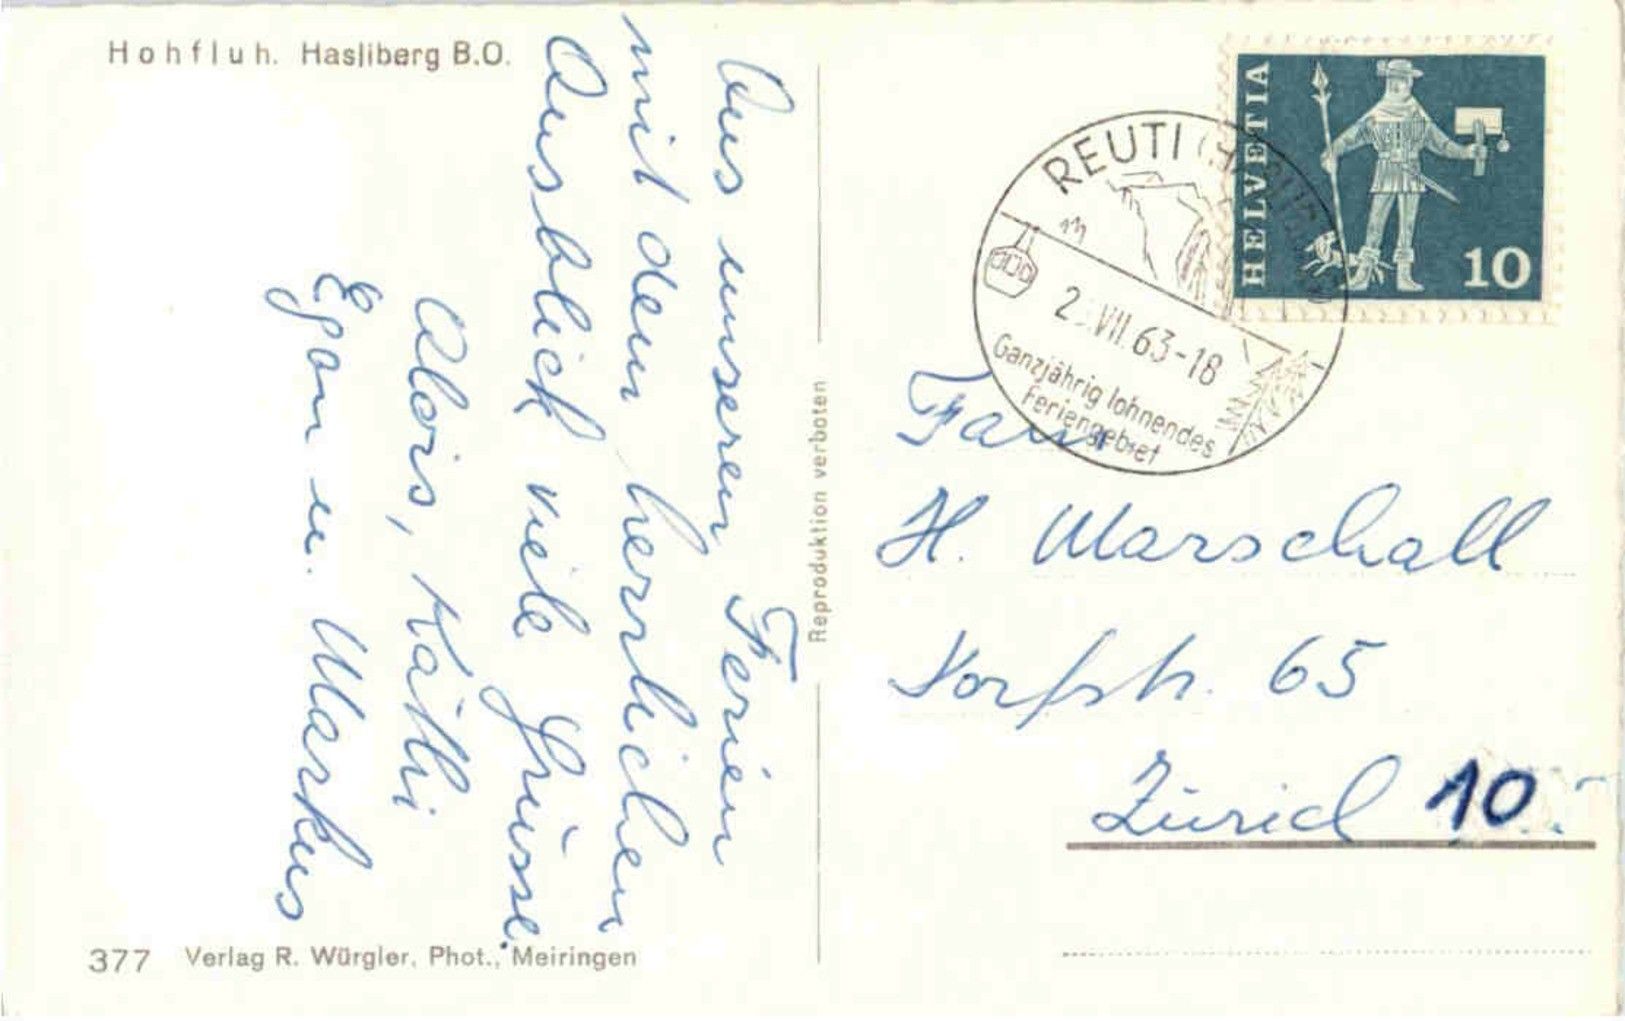 Hohfluh. Hasliberg B.O.
Aus unseren Ferien
mit dem herrlichen
Ausblick viele Grüsse
Alois, Käthi
Egon u. Markus
377 Verlag R. Würgler, Phot., Meiringen
Reproduktion verboten
HELVETIA
10
REUTI
VII.63-18
Ganzjährig lohnendes
Feriengebiet
Fam
H. Marschall
Dorfstr. 65
Zürich 10